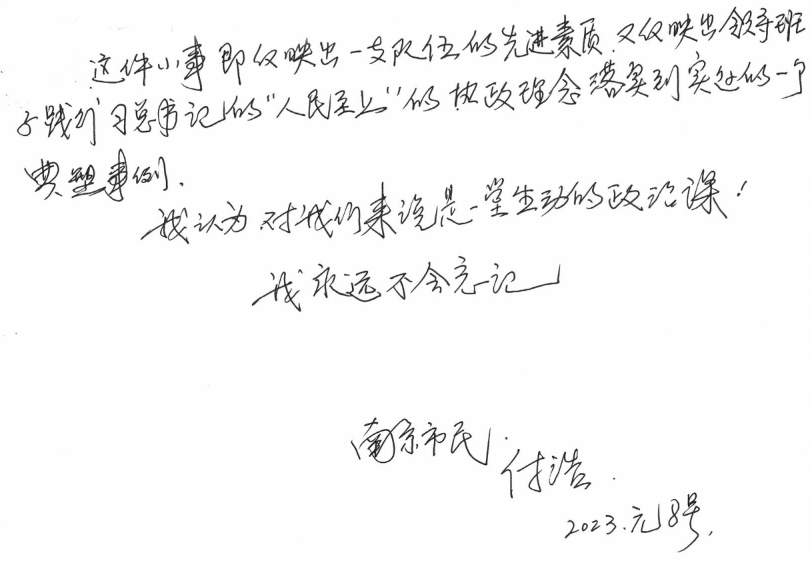 这件小事即仅映出一支队伍的先进素质.又仅映出领导班
子践行习总书记的“人民至上”的执政理念落实到实处的一个
典型事例.
我认为对我们来说是一堂生动的政治课!
我永远不会忘记
南京市民.
付浩.
2023.元8号.